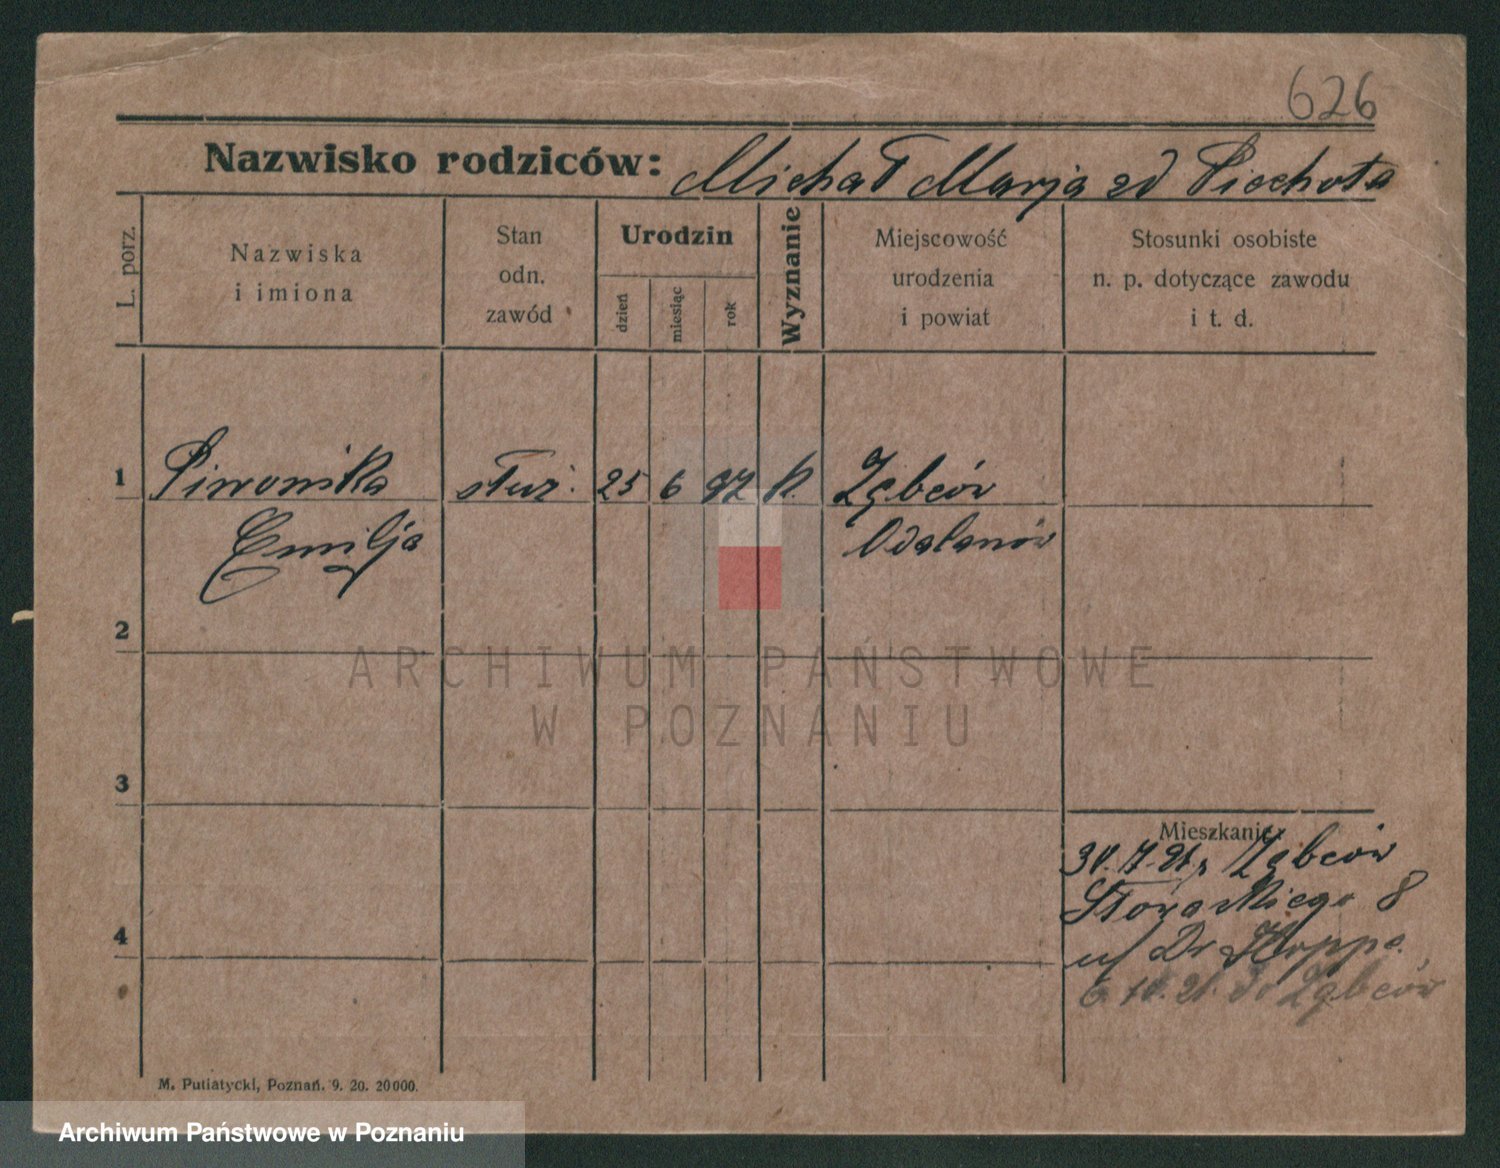 626
Nazwisko rodziców: Michał Marja zd Piechota
L. porz.
Nazwiska
i imiona
Stan
odn.
zawód
Urodzin
dzień
miesiąc
rok
Wyznanie
Miejscowość
urodzenia
i powiat
Stosunki osobiste
n. p. dotyczące zawodu
i t. d.
1 Piwonska służ. 25 6 97 k. Zębców
Emilja Odolanów
2
ARCHIWUM PAŃSTWOWE
W POZNANIU
3
Mieszkanie:
30.7.21 z Zębców
Słowackiego 8
u/ Dr Hoppe
4
6.10.21. do Zębców
M. Putiatycki, Poznań. 9. 20. 20000.
Archiwum Państwowe w Poznaniu